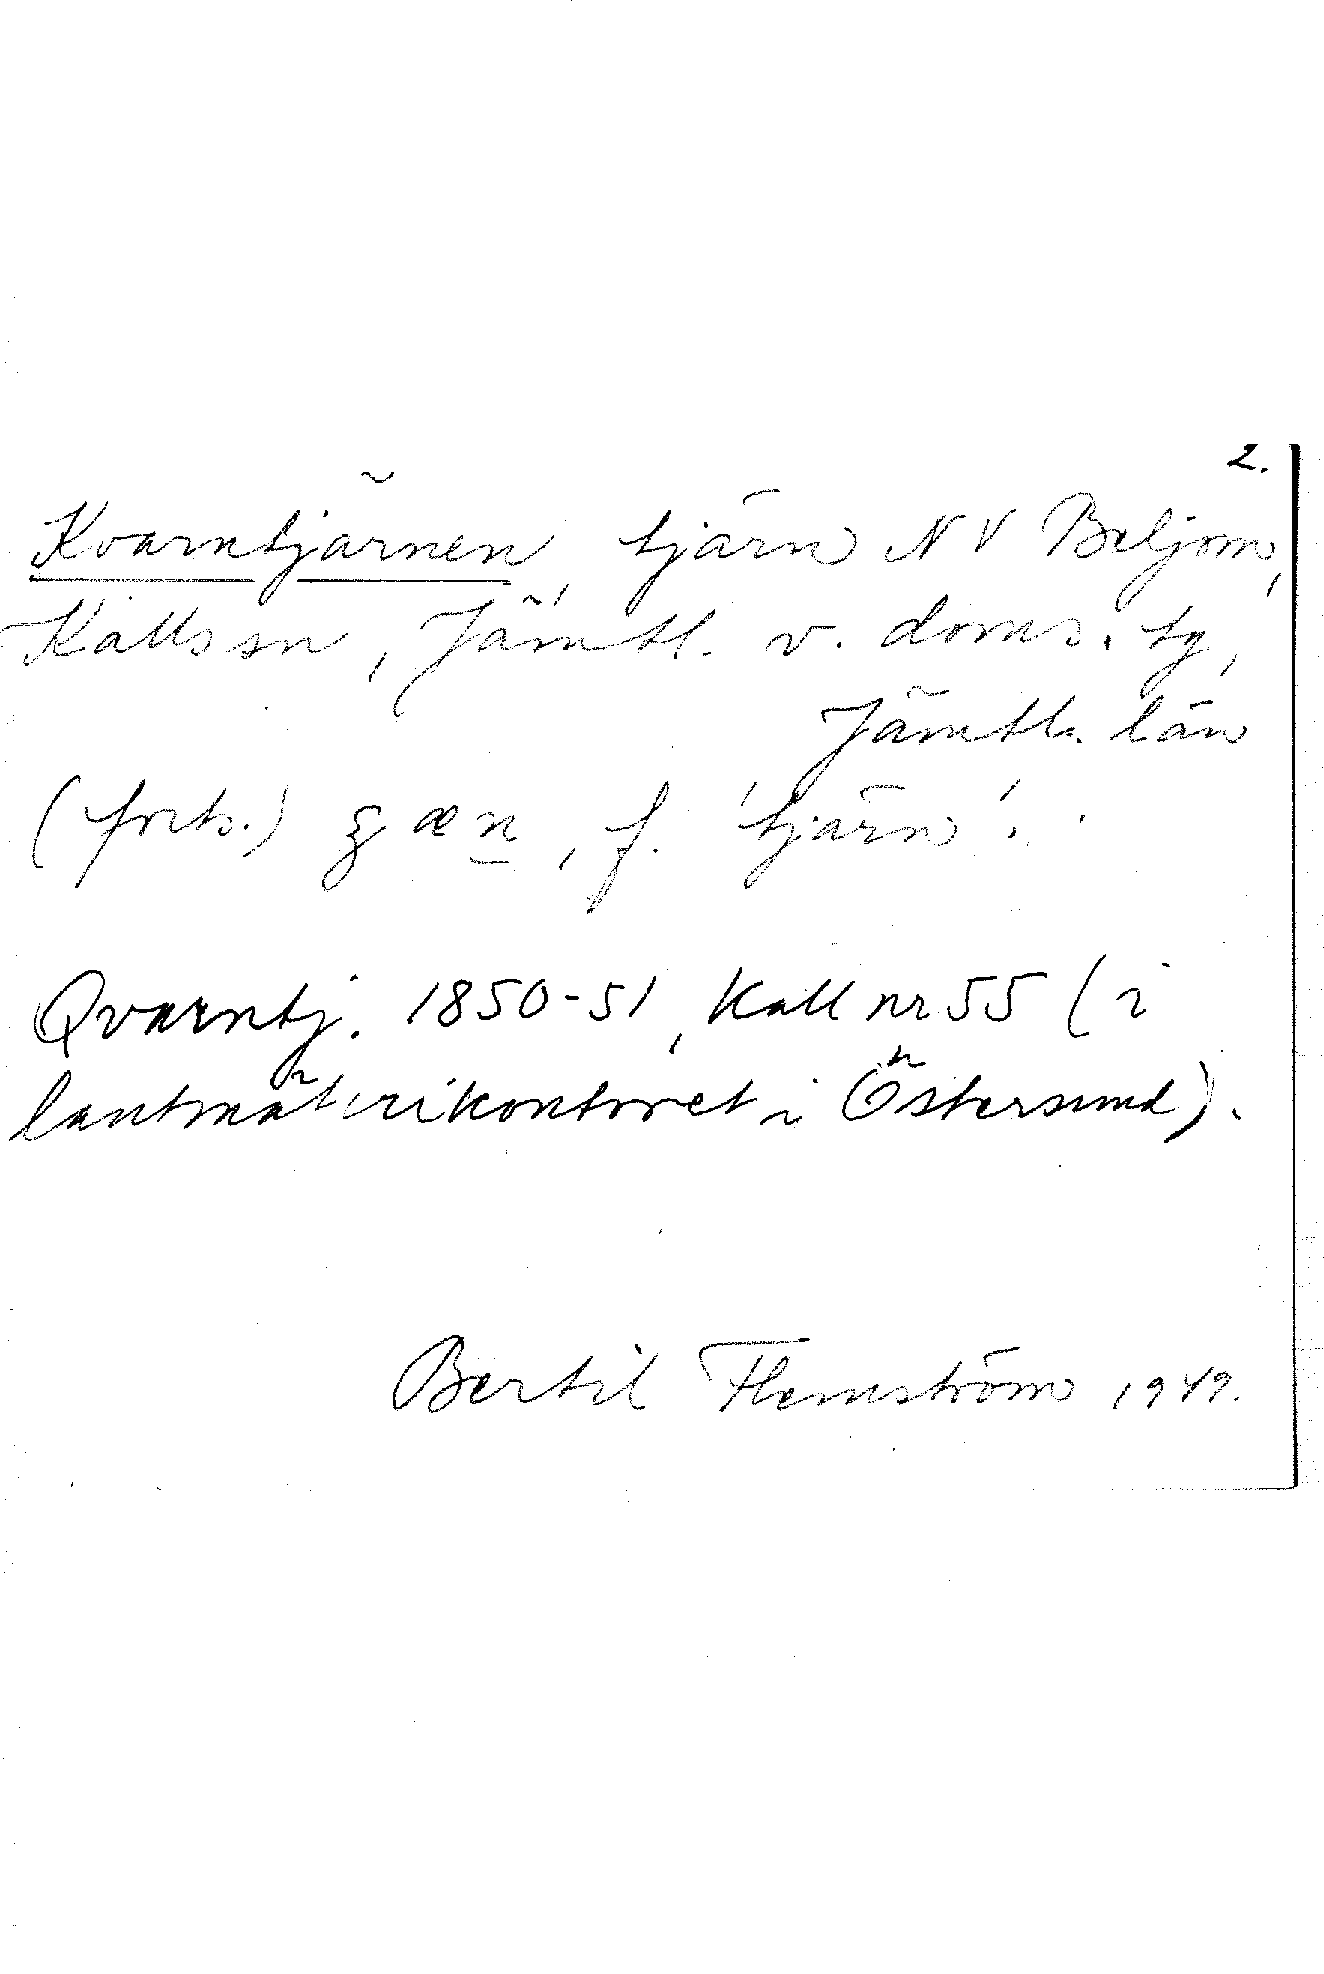 2.
Kvarntjärnen, tjärn NV Beljom,
Kalls sn, Jämtl. v. doms. tg,
Jämtl. län
(forts.) æn, f. 'tjärn'.
Qvarntj. 1850-51, Kall nr 55 (i
lantmäterikontoret i Östersund).
Bertil Flemström 1949.